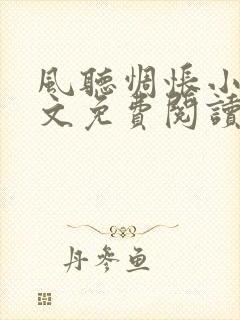 風聽惆悵小
文免費閱讀
丹參魚